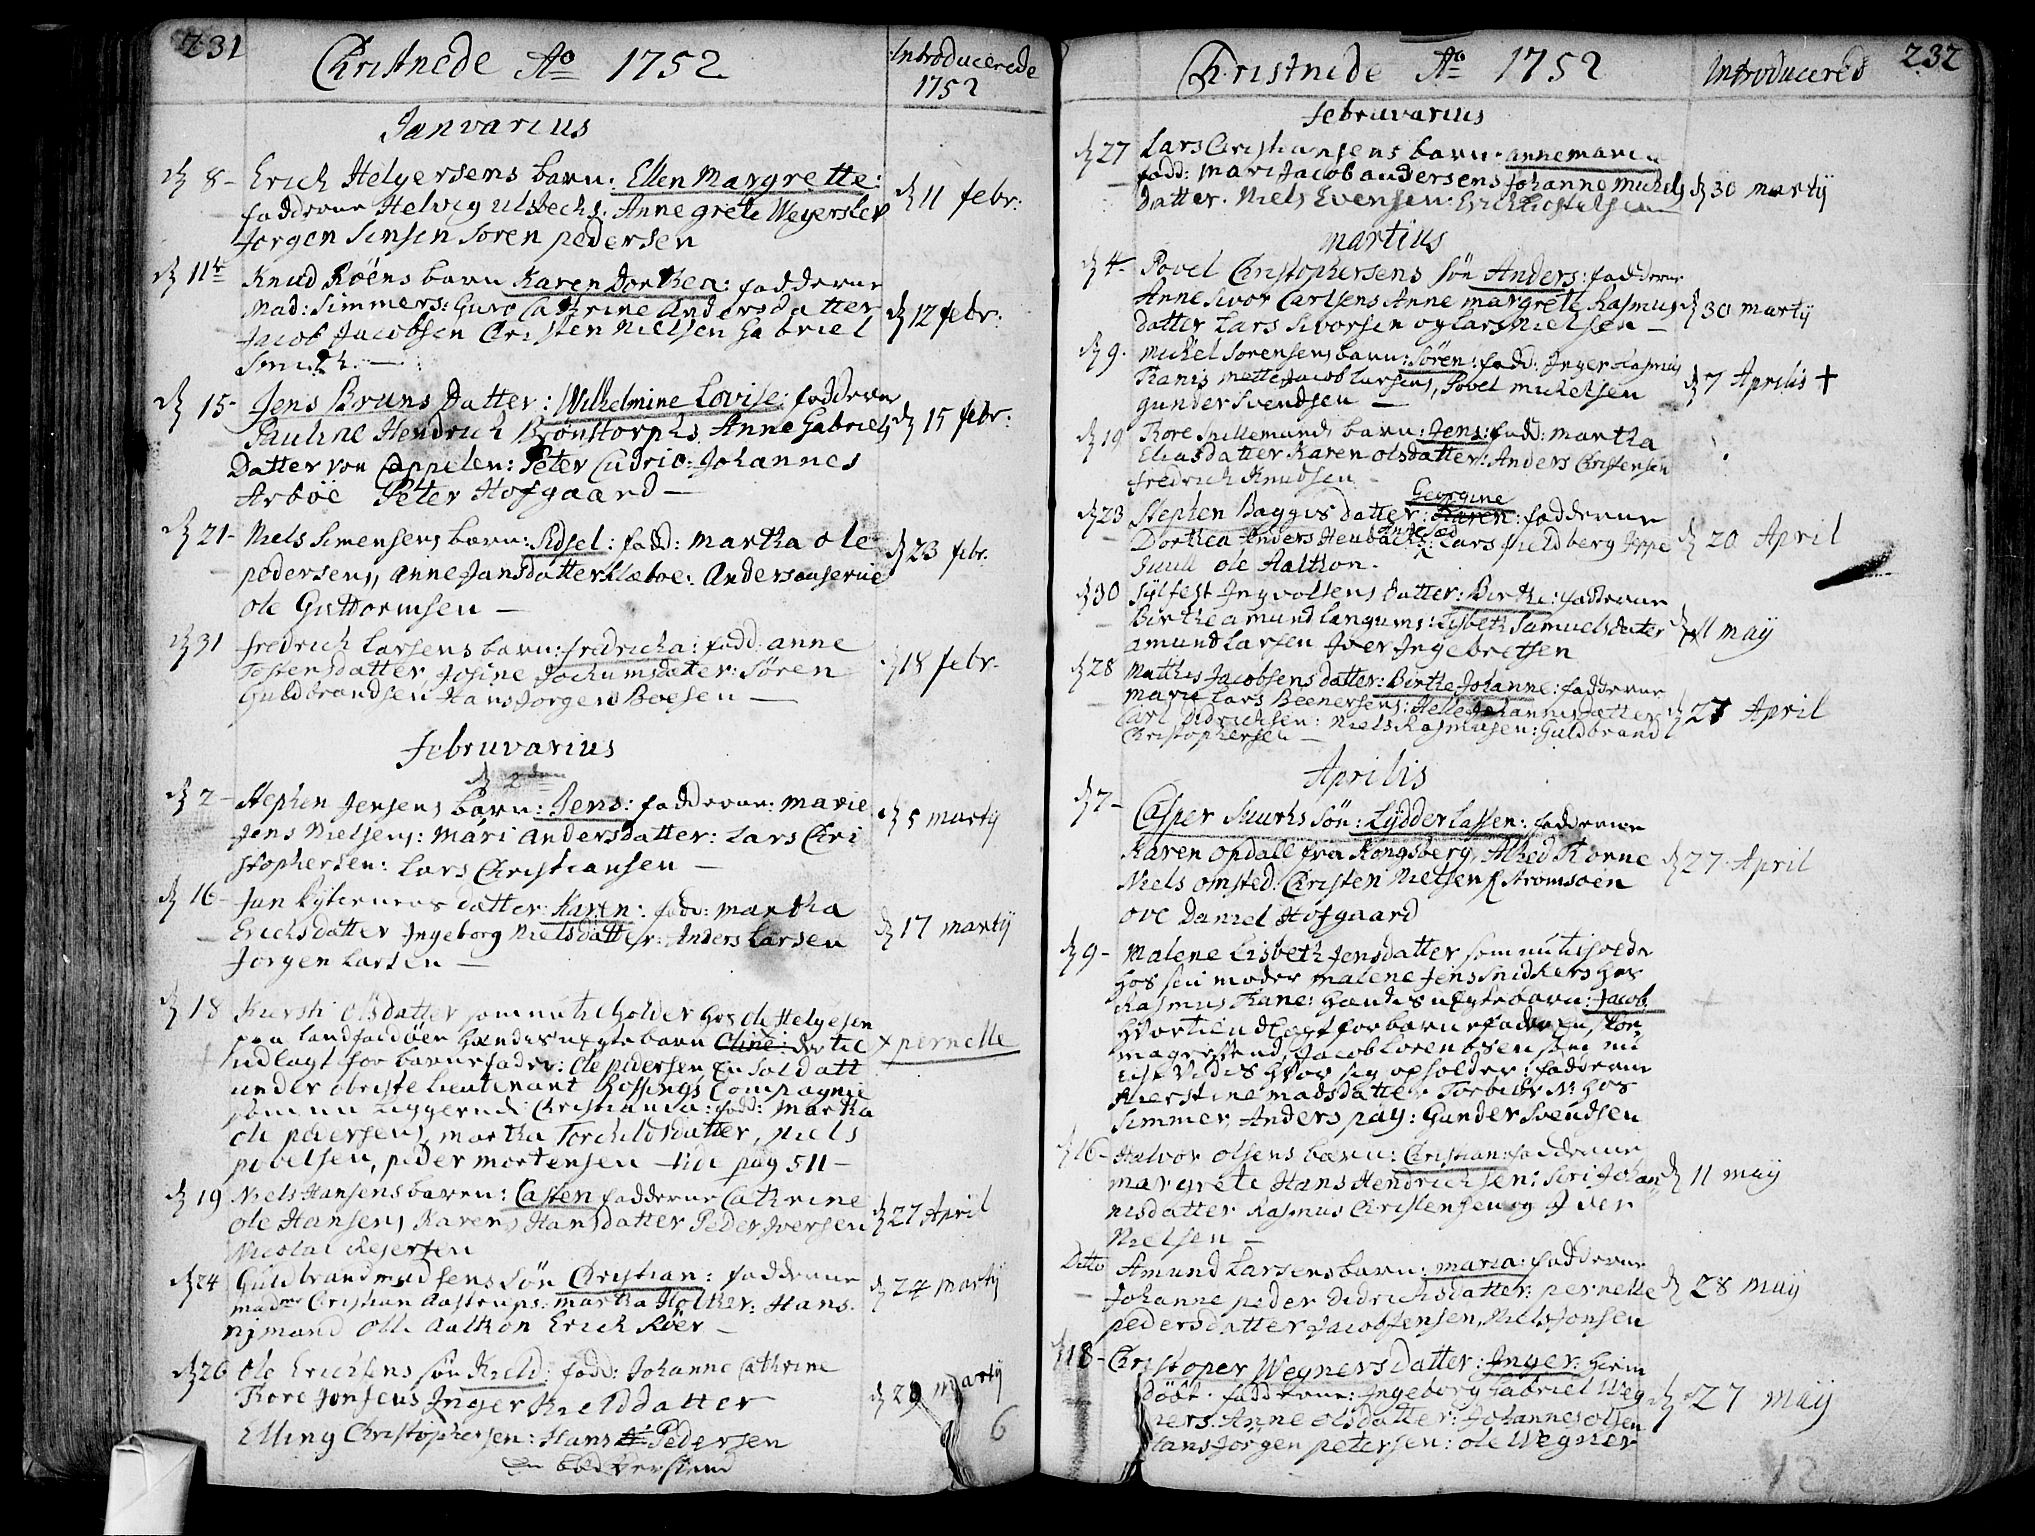 231
Christnede Ao 1752
Introducerede
1752
Janvarius
d 8 - Erich Helgersens barn: Ellen Margrethe:
fadderne Helvig Ulsbechs. Anne grete Weyerslev
Jorgen Jensen Soren pedersen
d 11 febr:
d 11te Knud Röens barn Karen Dorthea: fadderne
Mad: Simmers: Guro Cathrine Andersdatter
Jacob Jacobsen Christen Nielsen Gabriel
Smith. —
d 12 febr:
d 15 - Jens Bruns Datter: Wilhelmine Lovise: fadderne
Pauline Hendrich Brönstorphs. Anne Gabriels
Datter von Cappelen: Peter Cudrio: Johannes
Arböe Peter Hofgaard —
d 15 febr:
d 21 - Niels Simensens barn: Sidsel: fadd: Martha ole
pedersens, Anne Jansdatter Klæboe: Anders
ole Guttormsen —
d 23 febr.
d 31 fredrich Larsens barn: fredricha: fadd: anne
Tostensdatter Josine Jochumsdatter: Sören
Guldbrandsen Hans Jorgens Boesen —
d 18 febr.
Februvarius
d 2 - Stephen Jensens barn: Jens: fadderne: Marie
Jens Nielsens: Mari Andersdatter: Lars Chri
stophersen: Lars Christiansen —
d 5 martij
d 16 - Jan Ryterens datter Karen: fadd: Martha
Erichsdatter Ingeborg Nielsdatter: Anders Larsen
Jorgen Larsen —
d 17 martij
d 18 Kiersti olsdatter som nu til holder hos ole Helgesen
paa landfaldöen hændes uægte barn Eline: der til
udlagt for barnefader: Ole pedersen En Soldatt
under obriste lieutenant Rossings Compagnie
som nu liggende Christiania: fadd: Martha
ole pedersens, martha Torchildsdatter, Niels
povelsen, peder mortensen — vide pag 511 —
x pernelle
d 19 Niels Hansens barn: Casten fadderne Cathrine
ole Hansens Karens Hansdatter Peder Iversen
Nicolai Rejersen
d 27 April
d 24 Guldbrand madsens Sön Christian: fadderne
madme Cristian Aastrups: martha Holther: Hans
nymand Olle Aalthon Erich Röer —
d 24 martij
d 26 ole Erichsens sön Kield: fadd: Johanne Cathrine
Thore Jonsens Inger Kieldsdatter
Elling Christophersen: Hans Pedersen
d 29 martij
6
232
Christnede Ao 1752
Introducered
februvarius
d 27 Lars Christiansens barn: anne maria
fadd: Mari Jacob andersens Johanne Michels
Datter. Niels Evensen:
d 30 martij
martius
d 4 - Povel Christophersens sön Anders: fadderne
Anne Sivor Carlsens Anne margrete Rasmus
datter Lars Sivorsen og Lars Nielsen —
d 30 martij
d 9. Mickel Sorensens barn: Sören: fadd: Inger Rasmus
Thanis mette Jacob Larsens, Povel Mickelsen
gunder Svendsen —
d 7 Aprilis †
d 19 Thore Spillemands barn: Jens: fadd: Martha
Eliasdatter Karen olsdatter: Anders Christensen
fredrich Knudsen -
d 23 Stephen Bagges datter: Georgine Karen: fadderne
Dorthea Anders Heubachs: Lars fieldberg Jppe
Juull ole Aalthon.
d 20 April
d 30 Sylfest Ingvolsens datter: Birthe: fadderne
Birthe amund Langums: Lisbeth Samuelsdatter
amund Larsen Iver Ingebretsen
d 11 may
d 28 Mathis Jacobsens datter: Birthe Johanne: fadderne
marie Lars Beenersens: Helle Johannisdatter
Carl Didrichsen: Niels Rasmusen: Guldbrand
Christophersen —
d 27 April
Aprilis
d 7 - Casper Suurhs Sön: Lydder Lassen: fadderne
Karen opdall fra Kongsberg, Alhed Thorne
Niels omsted. Christen Nielsen Stromsöen
ove Daniel Hofgaard
d 27 April
d 9 - Malene Lisbeth Jensdatter som nu tisholder
hos sin moder malene Jens Snidkers hos
Rasmus Thane: hændes uægte barn: Jacob
hvortil udlagt for barnefaderen,
Jacob Lorentsen, som nu
icke vides hvor sig opholder: fadderne
Kierstine madsdatter Torbiör N: hos
Simmer, Anders pay: Gunder Svendsen
d 16 - Halvor olsens barn: Christian: fadderne
margrete Hans Hendrichsen: Siri Johan
nisdatter Rasmus Christensen og Iver
Nielsen —
d 11 may
Ditto Amund Larsens barn: maria: fadderne
Johanne peder Didrichsdatter: pernelle
pedersdatter Jacob Jensen, Niels Jonsen
d 28 may
d 18 - Christoper Wegners datter: Inger: hiem
döbt. fadderne: Ingeborg Gabriel Weg
ners. Anne olsdatter: Johannes olsen
Hans Jörgen petersen: ole Wegner
d 27 may
12